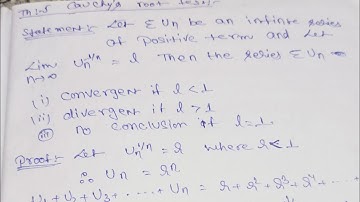 Third Cauchy's root test:-
Statement:- Let Σ Un be an infinite series
of positive term and Let
Lim n→∞ Un^1/n = l Then the series Σ Un -
(i) convergent if l < 1
(ii) divergent if l > 1
(iii) no conclusion if l = 1.
Proof:- Let Un^1/n = r where r < 1
∴ Un = r^n
U1 + U2 + U3 + ... + Un = r + r² + r³ + r⁴ + ...